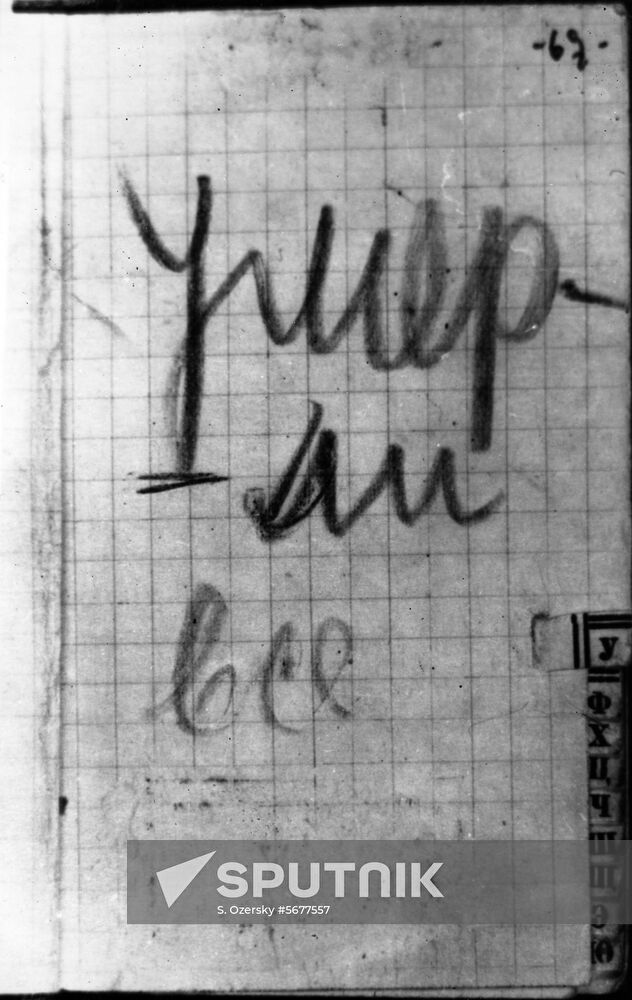 -69-
Умер-
ли
все
У
Ф
Х
Ц
Ч
Ш
Щ
Э
Ю
SPUTNIK
S. Ozersky #5677557